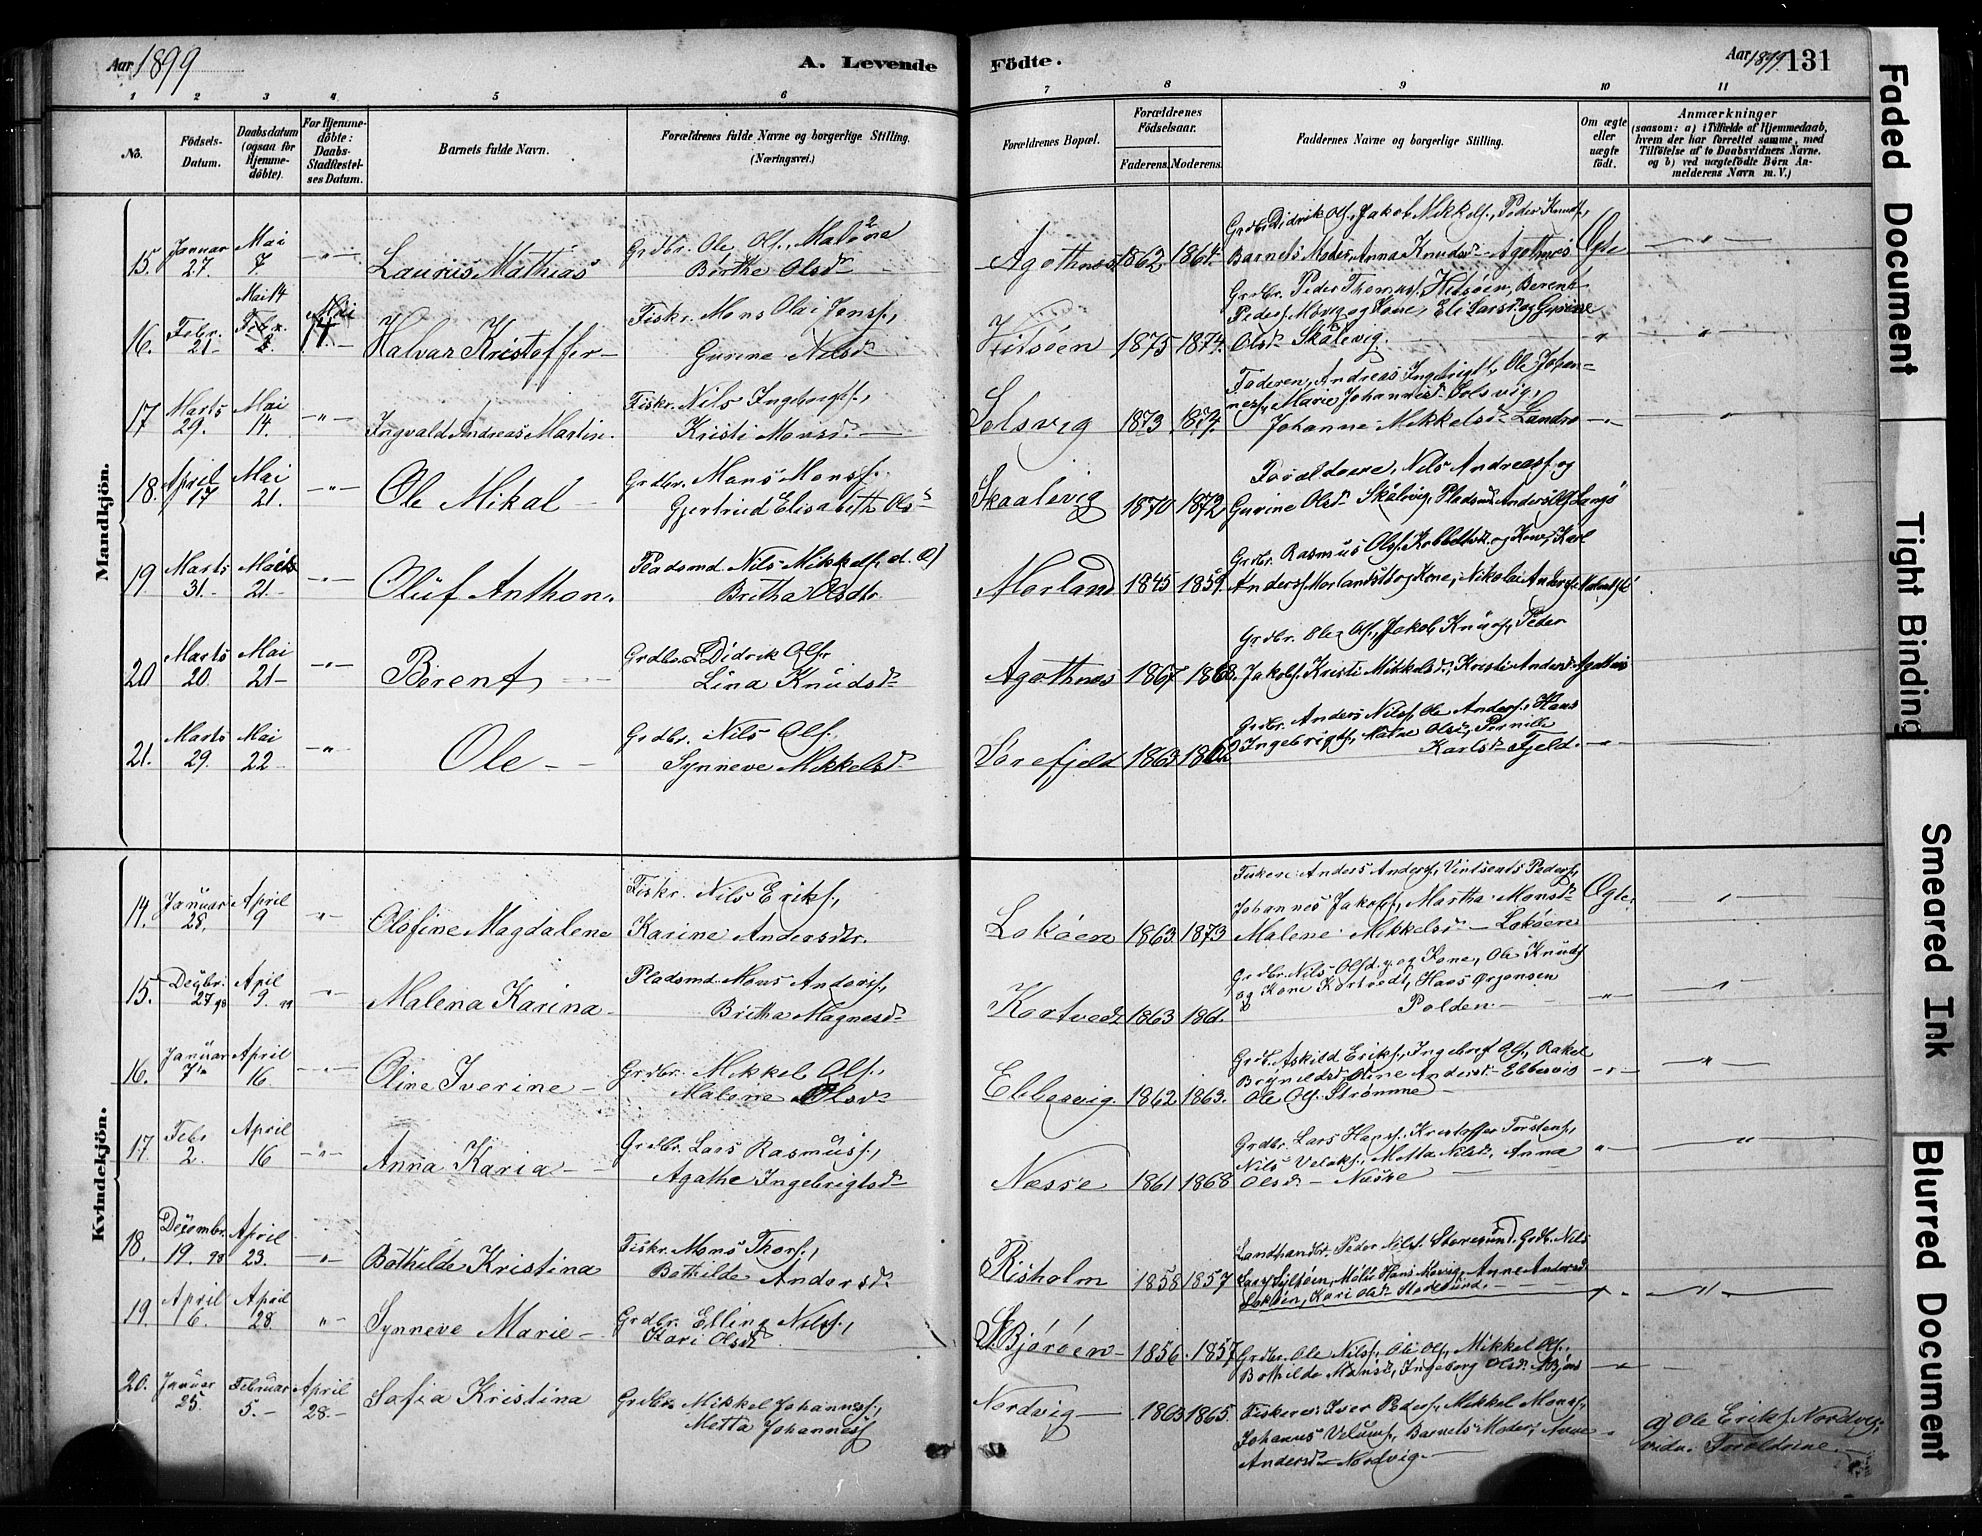 Aar 1899
A. Levende
Födte.
Aar 1899. 131
1 2 3 4 5 6 7 8 9 10 11
No.
Födsels-
Datum.
Daabsdatum
(ogsaa for
Hjemme-
döbte).
For Hjemme-
döbte:
Daabs-
Stadfæstel-
ses Datum.
Barnets fulde Navn.
Forældrenes fulde Navne og borgerlige Stilling.
(Næringsvei.)
Forældrenes Bopæl.
Forældrenes
Födselsaar.
Faderens. Moderens.
Faddernes Navne og borgerlige Stilling.
Om ægte
eller
uægte
födt.
Anmærkninger
(saasom: a) i Tilfælde af Hjemmedaab,
hvem der har forrettet samme, med
Tilföielse af to Daabsvidners Navne.
og b) ved uægtefödte Börn An-
melderens Navn m. V.)
Mandkjön.
15. Januar 27. Mai 7 Laurits Mathias
Grdbr. Ole Ols.,
Birthe Olsdr
Agothnes 1862 1864
Grdbr. Didrik Ols., Jakob Mikkels., Peder Knuds.,
Barnets Moder, Anna Knudsdr Agothnes
Ægte
16. Febr. 21 Mai 14 Halvar Kristoffer
Fiskr. Mons Olai Jens.,
Gurine Nilsdr
1875 1874.
Grdbr. Peder Thomas.
Olsdr Skålevig.
17 Marts 29. Mai 14. Ingvald Andreas Martin.
Fiskr. Nils Ingebrigts.,
Kristi Monsdr.
Solsvig 1873 1874.
Faderen, Andreas Ingebrigts., Ole Johan-
nes., Marie Johannesdr Solsvig,
Johanne Mikkelsdr Landro
18. April 17 Mai 21. Ole Mikal
Grdbr. Mons Mons.
Gjertrud Elisabeth Ols
Skaalevig 1870 1872
Forældrene, Nils Andreas. og
Gurine Olsdr Skålevig, Pladsmd Anders
19. Marts 31. Mai 21. Oluf Anthon.
Pladsmd Nils Mikkels.
Britha Olsdtr.
Morland 1845 1859.
Grdbr. Rasmus Ols. og Kone, Karl
Anders. og Kone, Nikolai Anders.
20 Marts 20. Mai 21 Berent
Grdbr. Didrik Ols.
Lina Knudsdr
Agothnes 1867 1868.
Grdbr. Ole Ols., Jakob Knuds., Peder
Jakobs. Kristi Mikkelsdr, Kristi Andersdr Agothnes
21. Marts 29. Mai 22 Ole
Grdbr. Nils Ols.,
Synneve Mikkelsdr
Sørefjeld 1863 1862
Grdbr. Anders Nils., Ole Anders., Hans
Ingebrigts., Marie Olsdr, Pernille
Karlsdr Fjeld.
Kvindekjön.
14. Januar 28. April 9 Olofine Magdalene
Fiskr. Nils Eriks.,
Karine Andersdr.
Lokøen 1863 1873
Fiskere Anders Anders., Vintsents Peders.,
Johannes Jakobs., Martha Monsdr
Malene Mikkelsdr Lokøen
Ægte.
15. Decbr. 27 98 April 9. 99 Malena Karina
Pladsmd Mons Anders.,
Britha Magnesdr
Kortvedt 1863 186
Grdbr. Nils Ols. og Kone, Ole Knuds.
og Kone Kortvedt, Hans Ørjansen
Polden
16. Januar 7 April 16 Oline Iverine
Grdbr. Mikkel Ols.,
Malene Olsdr
Ebbesvig 1862 1863.
Grdbr. Askild Eriks., Ingebrigt Ols., Rakel
Brynildsdr Oline Andersdr Ebbesvig
Ole Ols. Strømme
17. Febr 2. April 16 Anna Karia
Grdbr. Lars Rasmus.,
Agathe Ingebrigtsdr
Nesse 1861 1868
Grdbr. Lars Hans., Kristoffer Torstens.,
Nils Metta Nilsdr, Anna
Olsdr Nesse
18. Decembr. 19. 98 April 23. Bothilde Kristina
Fiskr. Mons Thors.,
Bothilde Andersdr
Risholm 1858 1857
Landhandler Peder Nils. Storesund. Grdb. Nils
Lars. Hans Anne Andersdr
Lokøen, Kari Olsdr Storesund.
19. April 16. April 28 Synneve Marie
Grdbr. Elling Nils.,
Kari Olsdr
Bjørøen 1856. 1857
Grdbr. Ole Nils., Ole Ols., Mikkel Ols.,
Bothilde Monsdr, Ingeborg Olsdr
20. Januar 25. Februar 5. April 28. Sofia Kristina
Grdbr. Mikkel Johannes.,
Metta Johannesdr
Nordvig 1863 1865.
Fiskerne Iver Peders., Mikkel Mons.,
Johannes Barnets Moder, Anne
Andersdr Nordvig
a) Ole Eriks. Nordvig,
vidn. Forældrene.
Faded Document
Tight Binding
Smeared Ink
Blurred Document